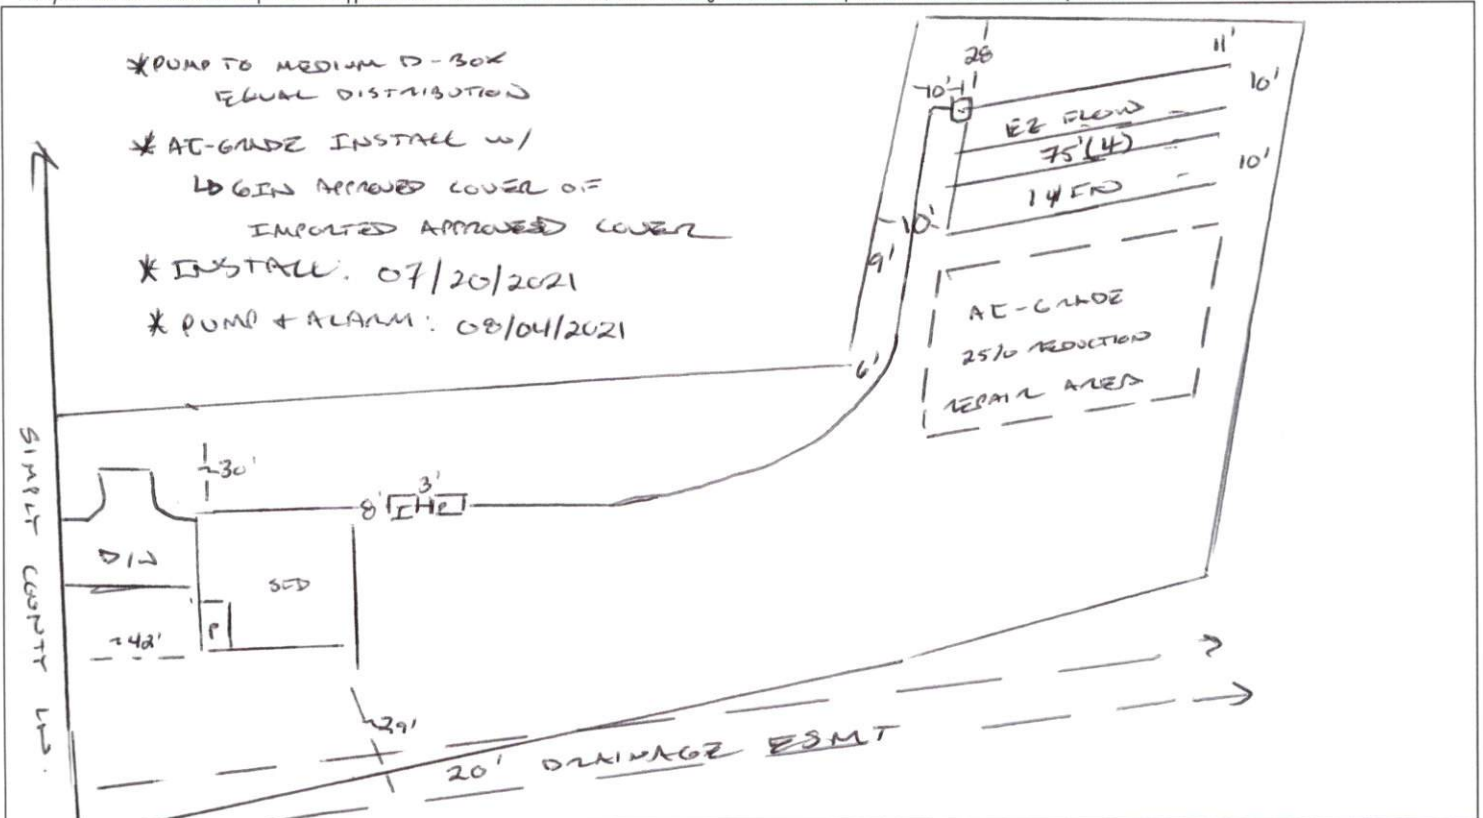 *PUMP TO MEDIUM D-BOX
EQUAL DISTRIBUTION
* AT-GRADE INSTALL W/
6IN APPROVED COVER OF
IMPORTED APPROVED COVER
* INSTALL: 07/20/2021
* PUMP + ALARM: 08/04/2021
28
11'
10'
10'
EZ FLOW
75'(4)
14 IN
10'
10'
9'
6'
AT-GRADE
25% REDUCTION
REPAIR AREA
SIMPLY COUNTY LN.
~30'
8'
3'
T
P
D/W
SFD
P
~42'
~39'
20' DRAINAGE ESMT